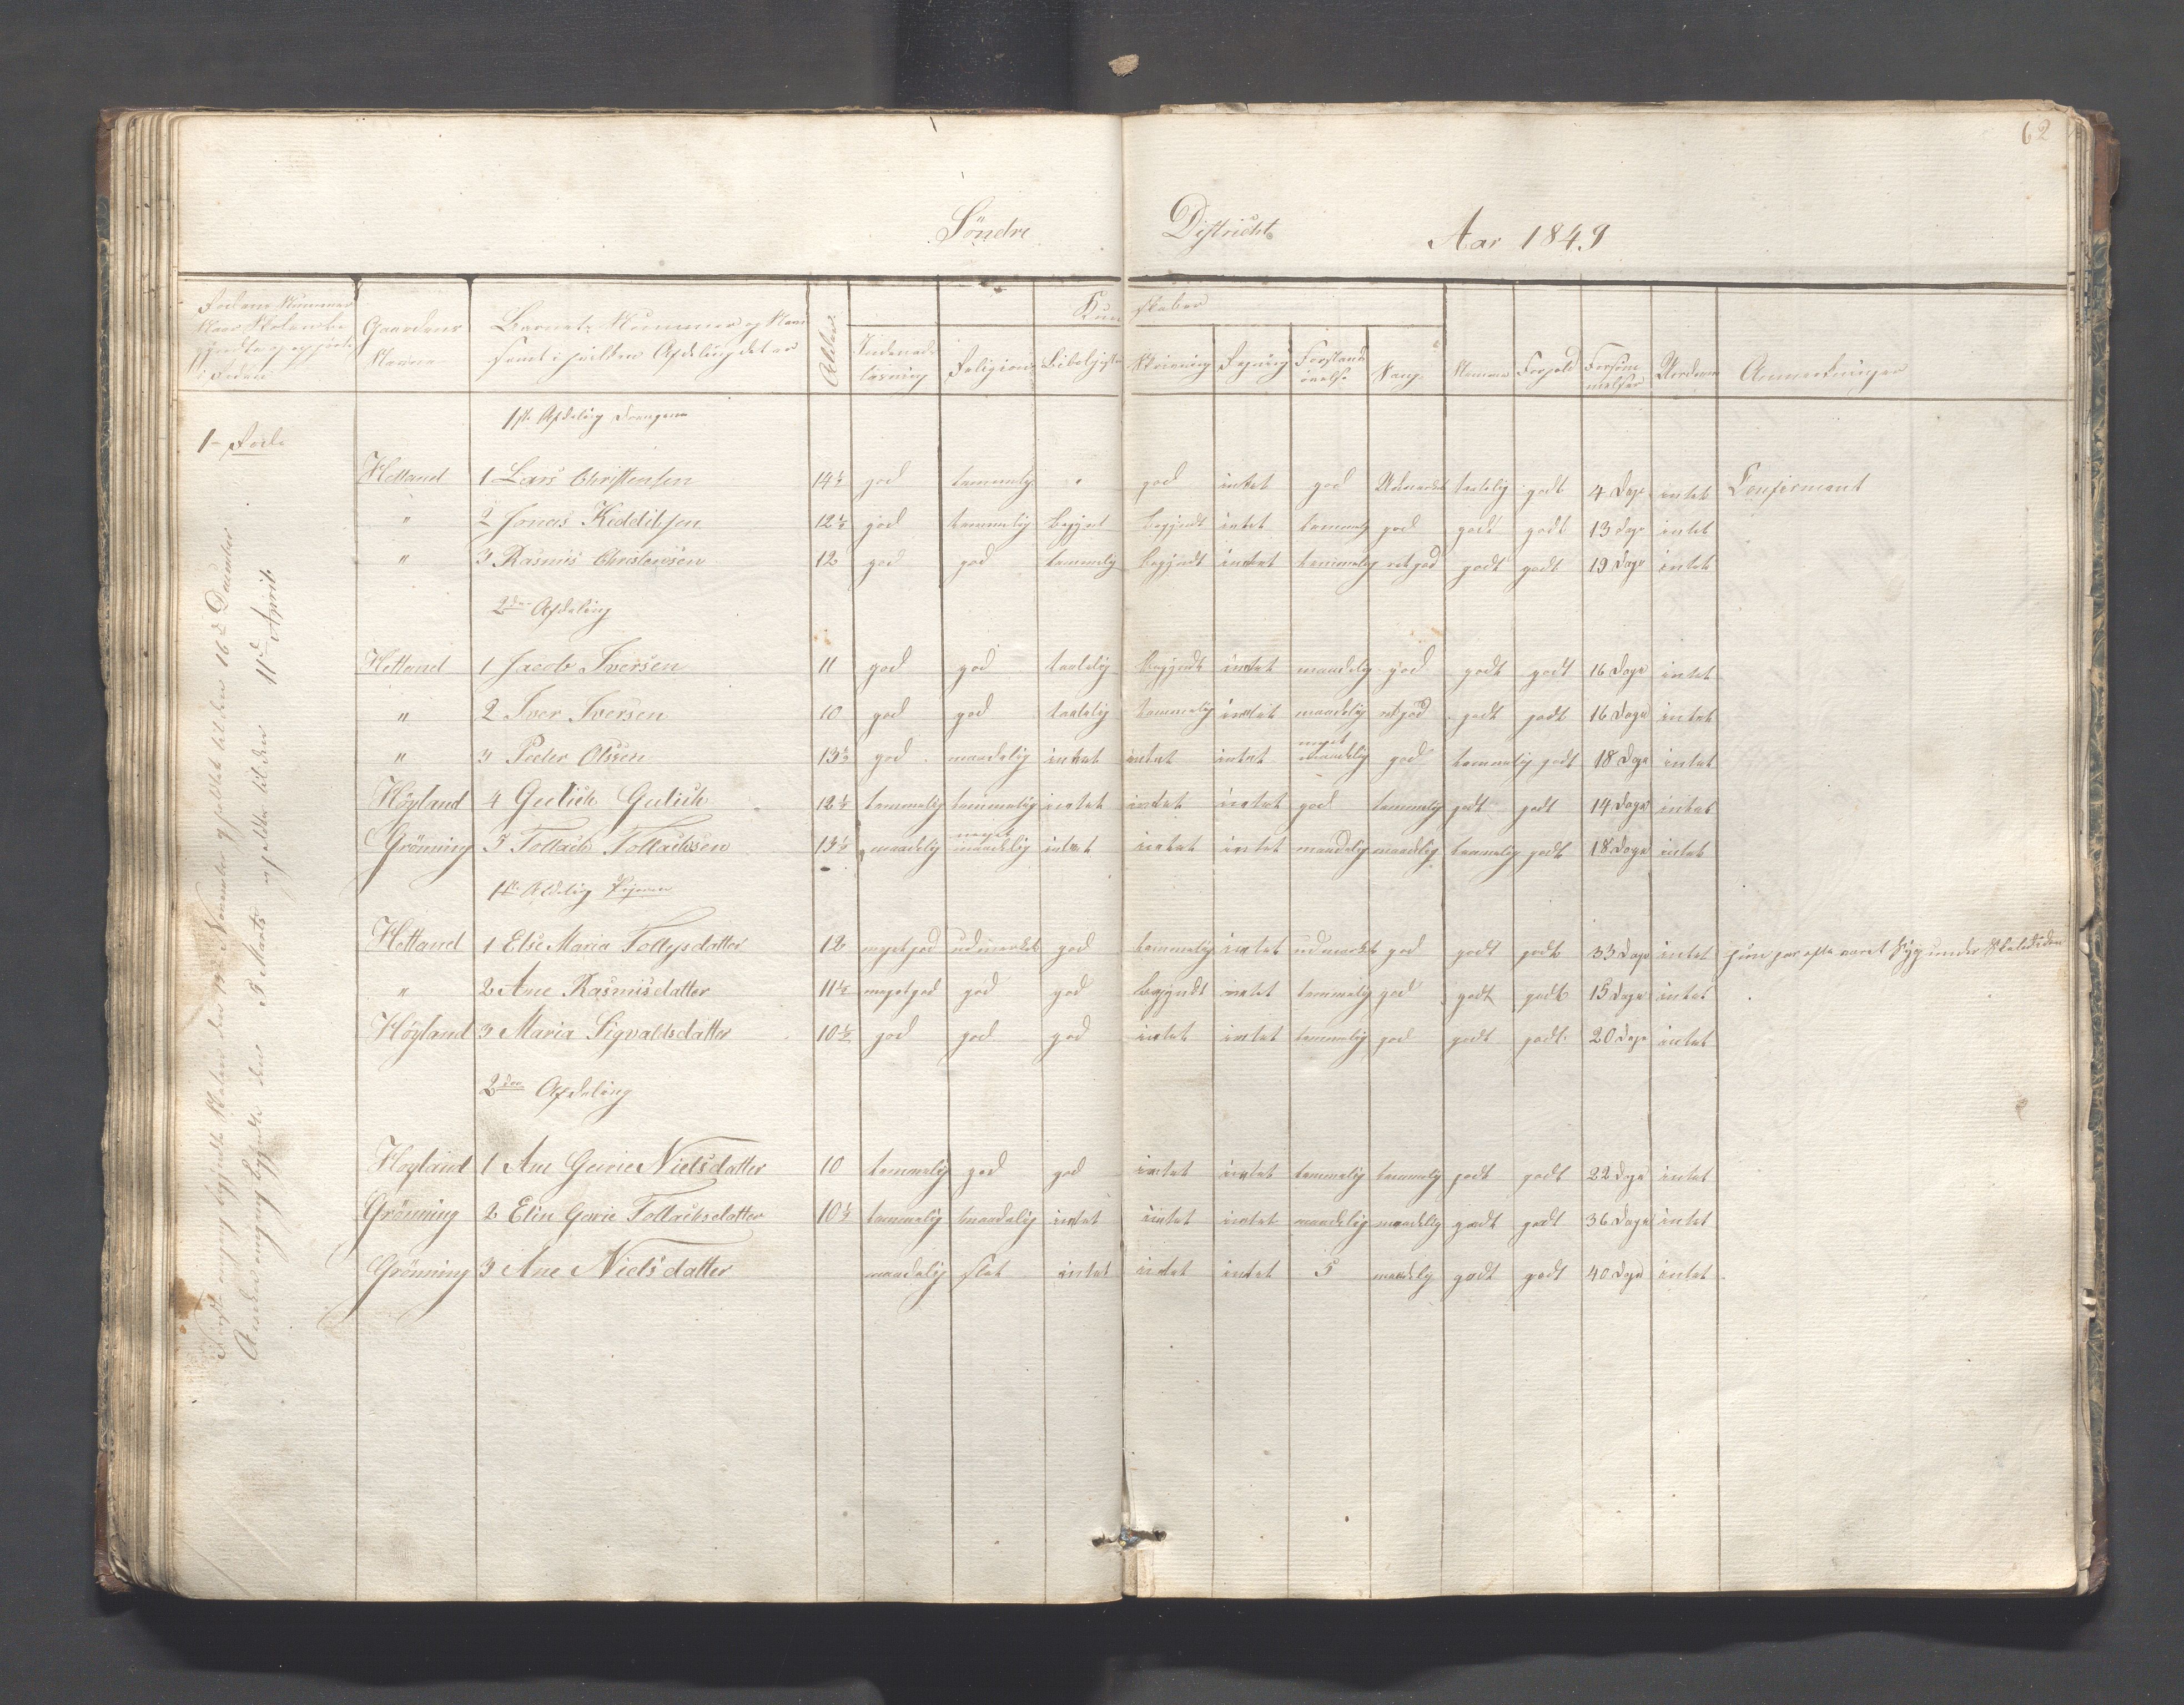 62
Söndre District Aar 1849
Rodens Nummer
Naar Skolen be
gyndte og ophörte
i Roden
Gaardens
Navne
Barnets Nummer og Navn
samt i hvilken Afdeling det er
Alder
Kundskaber
Indenads
læsning
Religion
Bibelhistorie
Skrivning
Regning
Forstands
övelse
Sang
Nemme
Forhold
Forsöm
melser
Uordnen
Anmerkninger
1ste Afdeling Drengene
1 Rode
Hetland 1 Lars Christensen 14½ god temmelig " god intet god Udmærket taalelig godt 4 Dage intet Confirmant
" 2 Jonas Keddilsen 12½ god temmelig begynt begyndt intet temmelig god godt godt 13 dage intet
" 3 Rasmus Christensen 12 god god temmelig begyndt intet temmelig ret god godt godt 19 Dage intet
2den Afdeling
Hetland 1 Jacob Iversen 11 god god taalelig begyndt intet maadelig god godt godt 16 Dage intet
" 2 Iver Iversen 10 god god taalelig temmelig intet maadelig ret god godt godt 16 Dage intet
" 3 Peder Olssen 13½ god maadelig intet intet intet meget maadelig god temmelig godt 18 Dage intet
Höyland 4 Gulich Gulich 12½ temmelig temmelig intet intet intet god temmelig godt godt 14 Dage intet
Grönning 5 Tollach Tollachsen 13½ maadelig meget maadelig intet intet intet maadelig maadelig temmelig godt 18 Dage intet
1ste Afdeling Pigerne
Hetland 1 Else Maria Tollysdatter 12 meget god udmærket god temmelig intet udmærket god godt godt 33 Dage intet hun har ofte været syg under Skoletiden
" 2 Ane Rasmusdatter 11½ meget god god god begyndt intet temmelig god godt godt 15 Dage intet
Höyland 3 Maria Sigvaldsdatter 10½ god god god intet intet temmelig god godt godt 20 Dage intet
2den Afdeling
Höyland 1 Ane Gurie Nielsdatter 10 temmelig god god intet intet temmelig temmelig godt godt 22 Dage intet
Grönning 2 Elin Gorie Tollachsdatter 10½ temmelig maadelig intet intet intet maadelig maadelig godt godt 36 Dage intet
Grönning 3 Ane Nielsdatter maadelig slet intet intet intet 5 maadelig godt godt 40 Dage intet
Förste engang begyndte Skolen den 19de November og holdt til den 16d December
Anden engang begyndte den 5 Marts og holdte til den 11te April